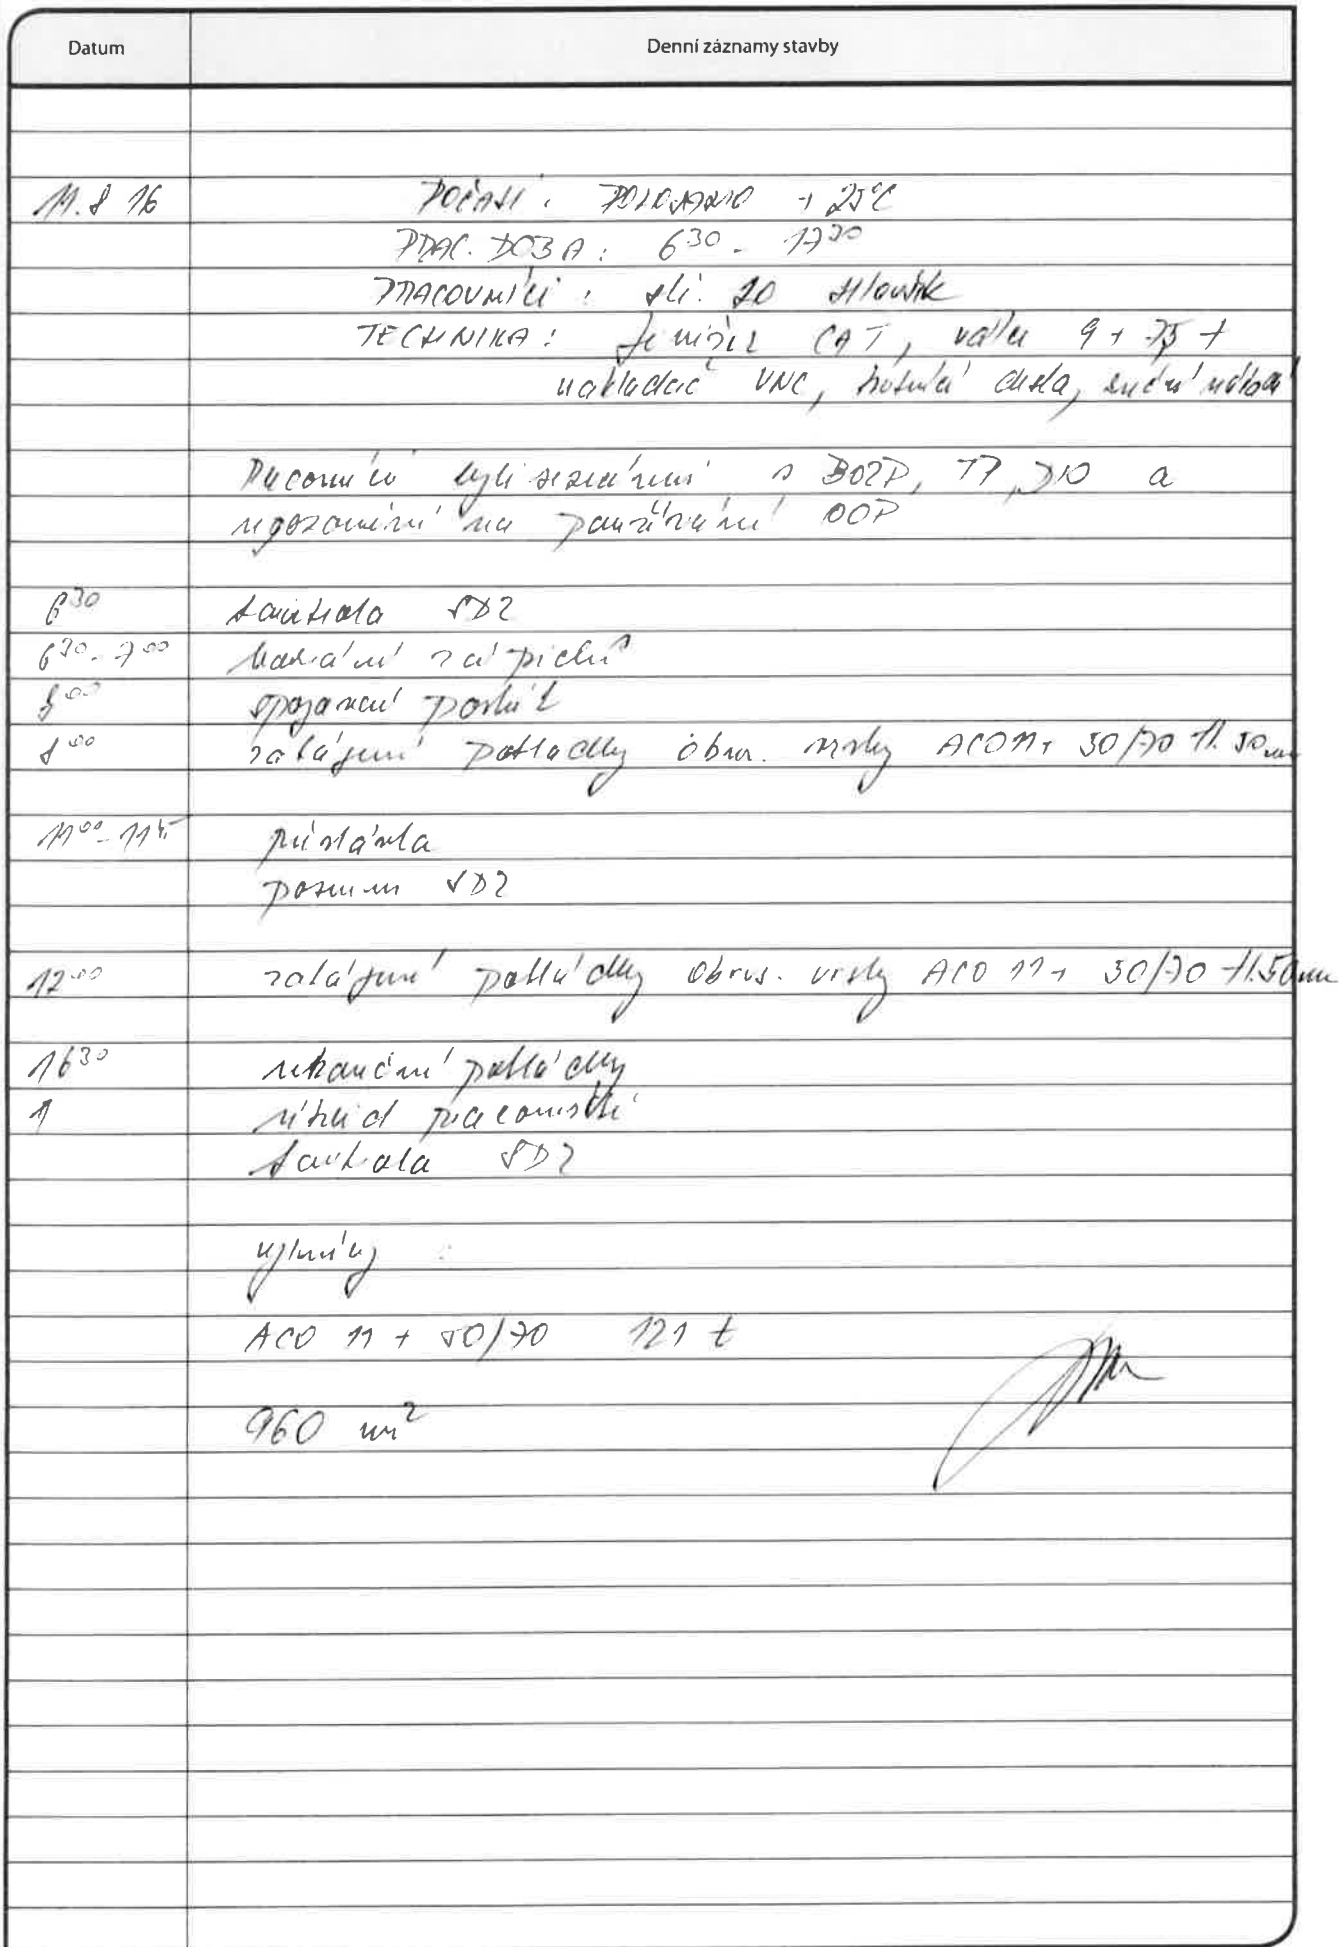 Datum
Denní záznamy stavby
11.8 16 POČASÍ: POLOJASNO + 25°C
PRAC. DOBA: 6 30 - 17 30
PRACOVNÍCI:
TECHNIKA: finišer CAT, válce 9 +
nakladač UNC, deska, ruční nářadí
Pracovníci byli seznámeni s BOZP, TP, a
upozorněni na používání OOP
6 30 kontrola SDZ
6 30 - 7 00 zápichů
spojovací postřik
8 00 zahájení pokládky obrus. vrstvy ACO 11+ 50/70 tl. 50mm
11 00 - přestávka
posun SDZ
12 00 zahájení pokládky obrus. vrstvy ACO 11+ 50/70 tl. 50mm
16 30 ukončení pokládky
úklid pracoviště
kontrola SDZ
výměry:
ACO 11 + 50/70 121 t
960 m²